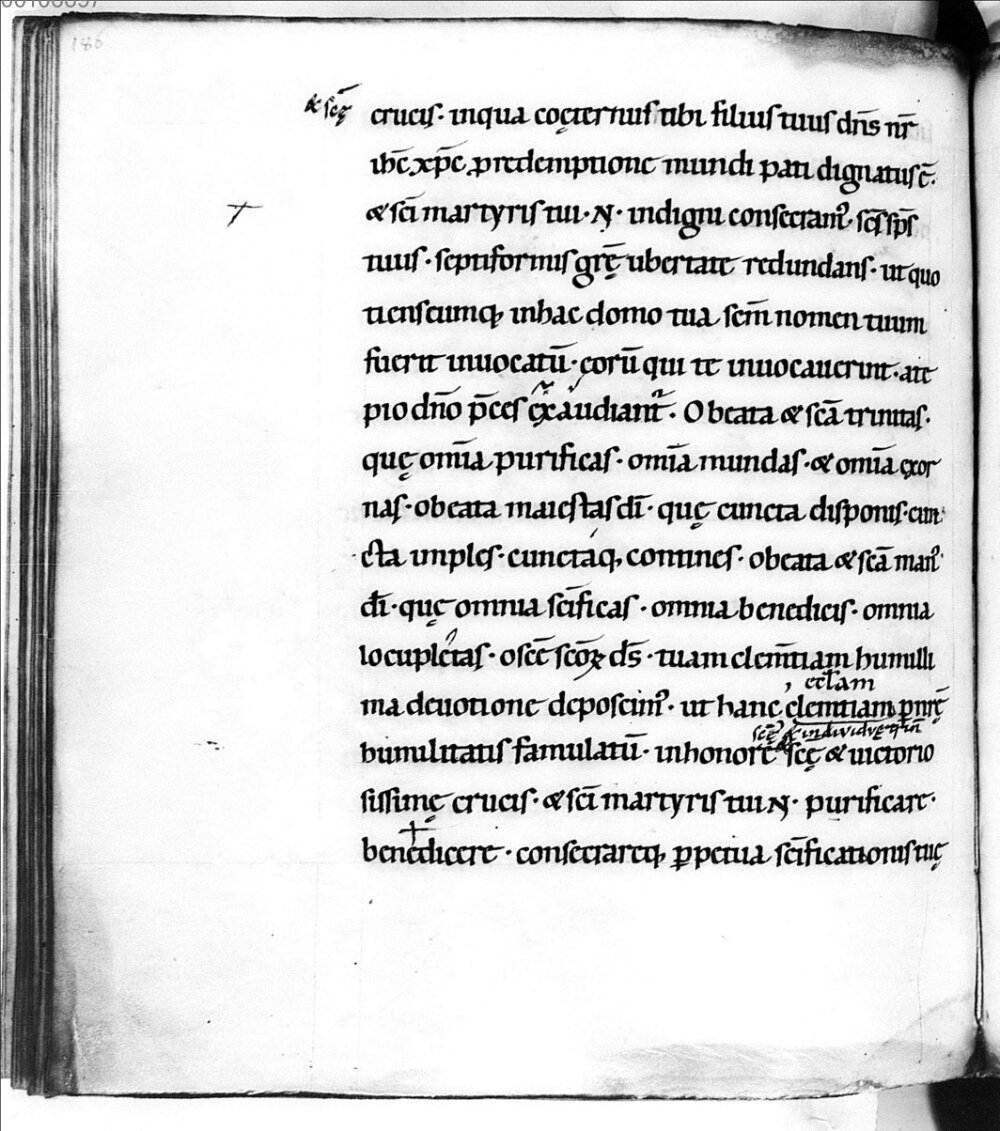 186
& scę̄
crucis· inqua coęternus tibi filius tuus dn̄s nr̄
ih̄c xp̄c ꝓ redemptione mundi pati dignatus ē·
& sc̄i martyris tui· N· indigni consecram᷒· sc̄s sp̄s
tuus· septiformis grę̄ ubertate redundans· ut quo
tienscumq; inhac domo tua sc̄m nomen tuum
fuerit inuocatū· eorū qui te inuocauerint· ate
pio dn̄o p̄ces ęxaudiant᷒· O beata & sc̄a trinitas·
quę om̄ia purificas· om̄ia mundas· & om̄ia ęxor
nas· o beata maiestas dī· quę cuncta disponis· cun
cta imples· cunctaq; contines· o beata & sc̄a man᷒
dī· quę omnia sc̄ificas· omnia benedicis· omnia
locupletas· o sc̄e sc̄oꝝ ds̄· tuam clem̄tiam humilli
ma deuotione deposcim᷒· ut hanc clem̄tiam ꝑ nr̄ę
eccl̄am
scę̄ & individuę
humilitatis famulatū· inhonore scę̄ & uictorio
sissimę crucis· & sc̄i martyris tui N· purificare·
benedicere· consecrareq; ꝑpetua sc̄ificationis tuę